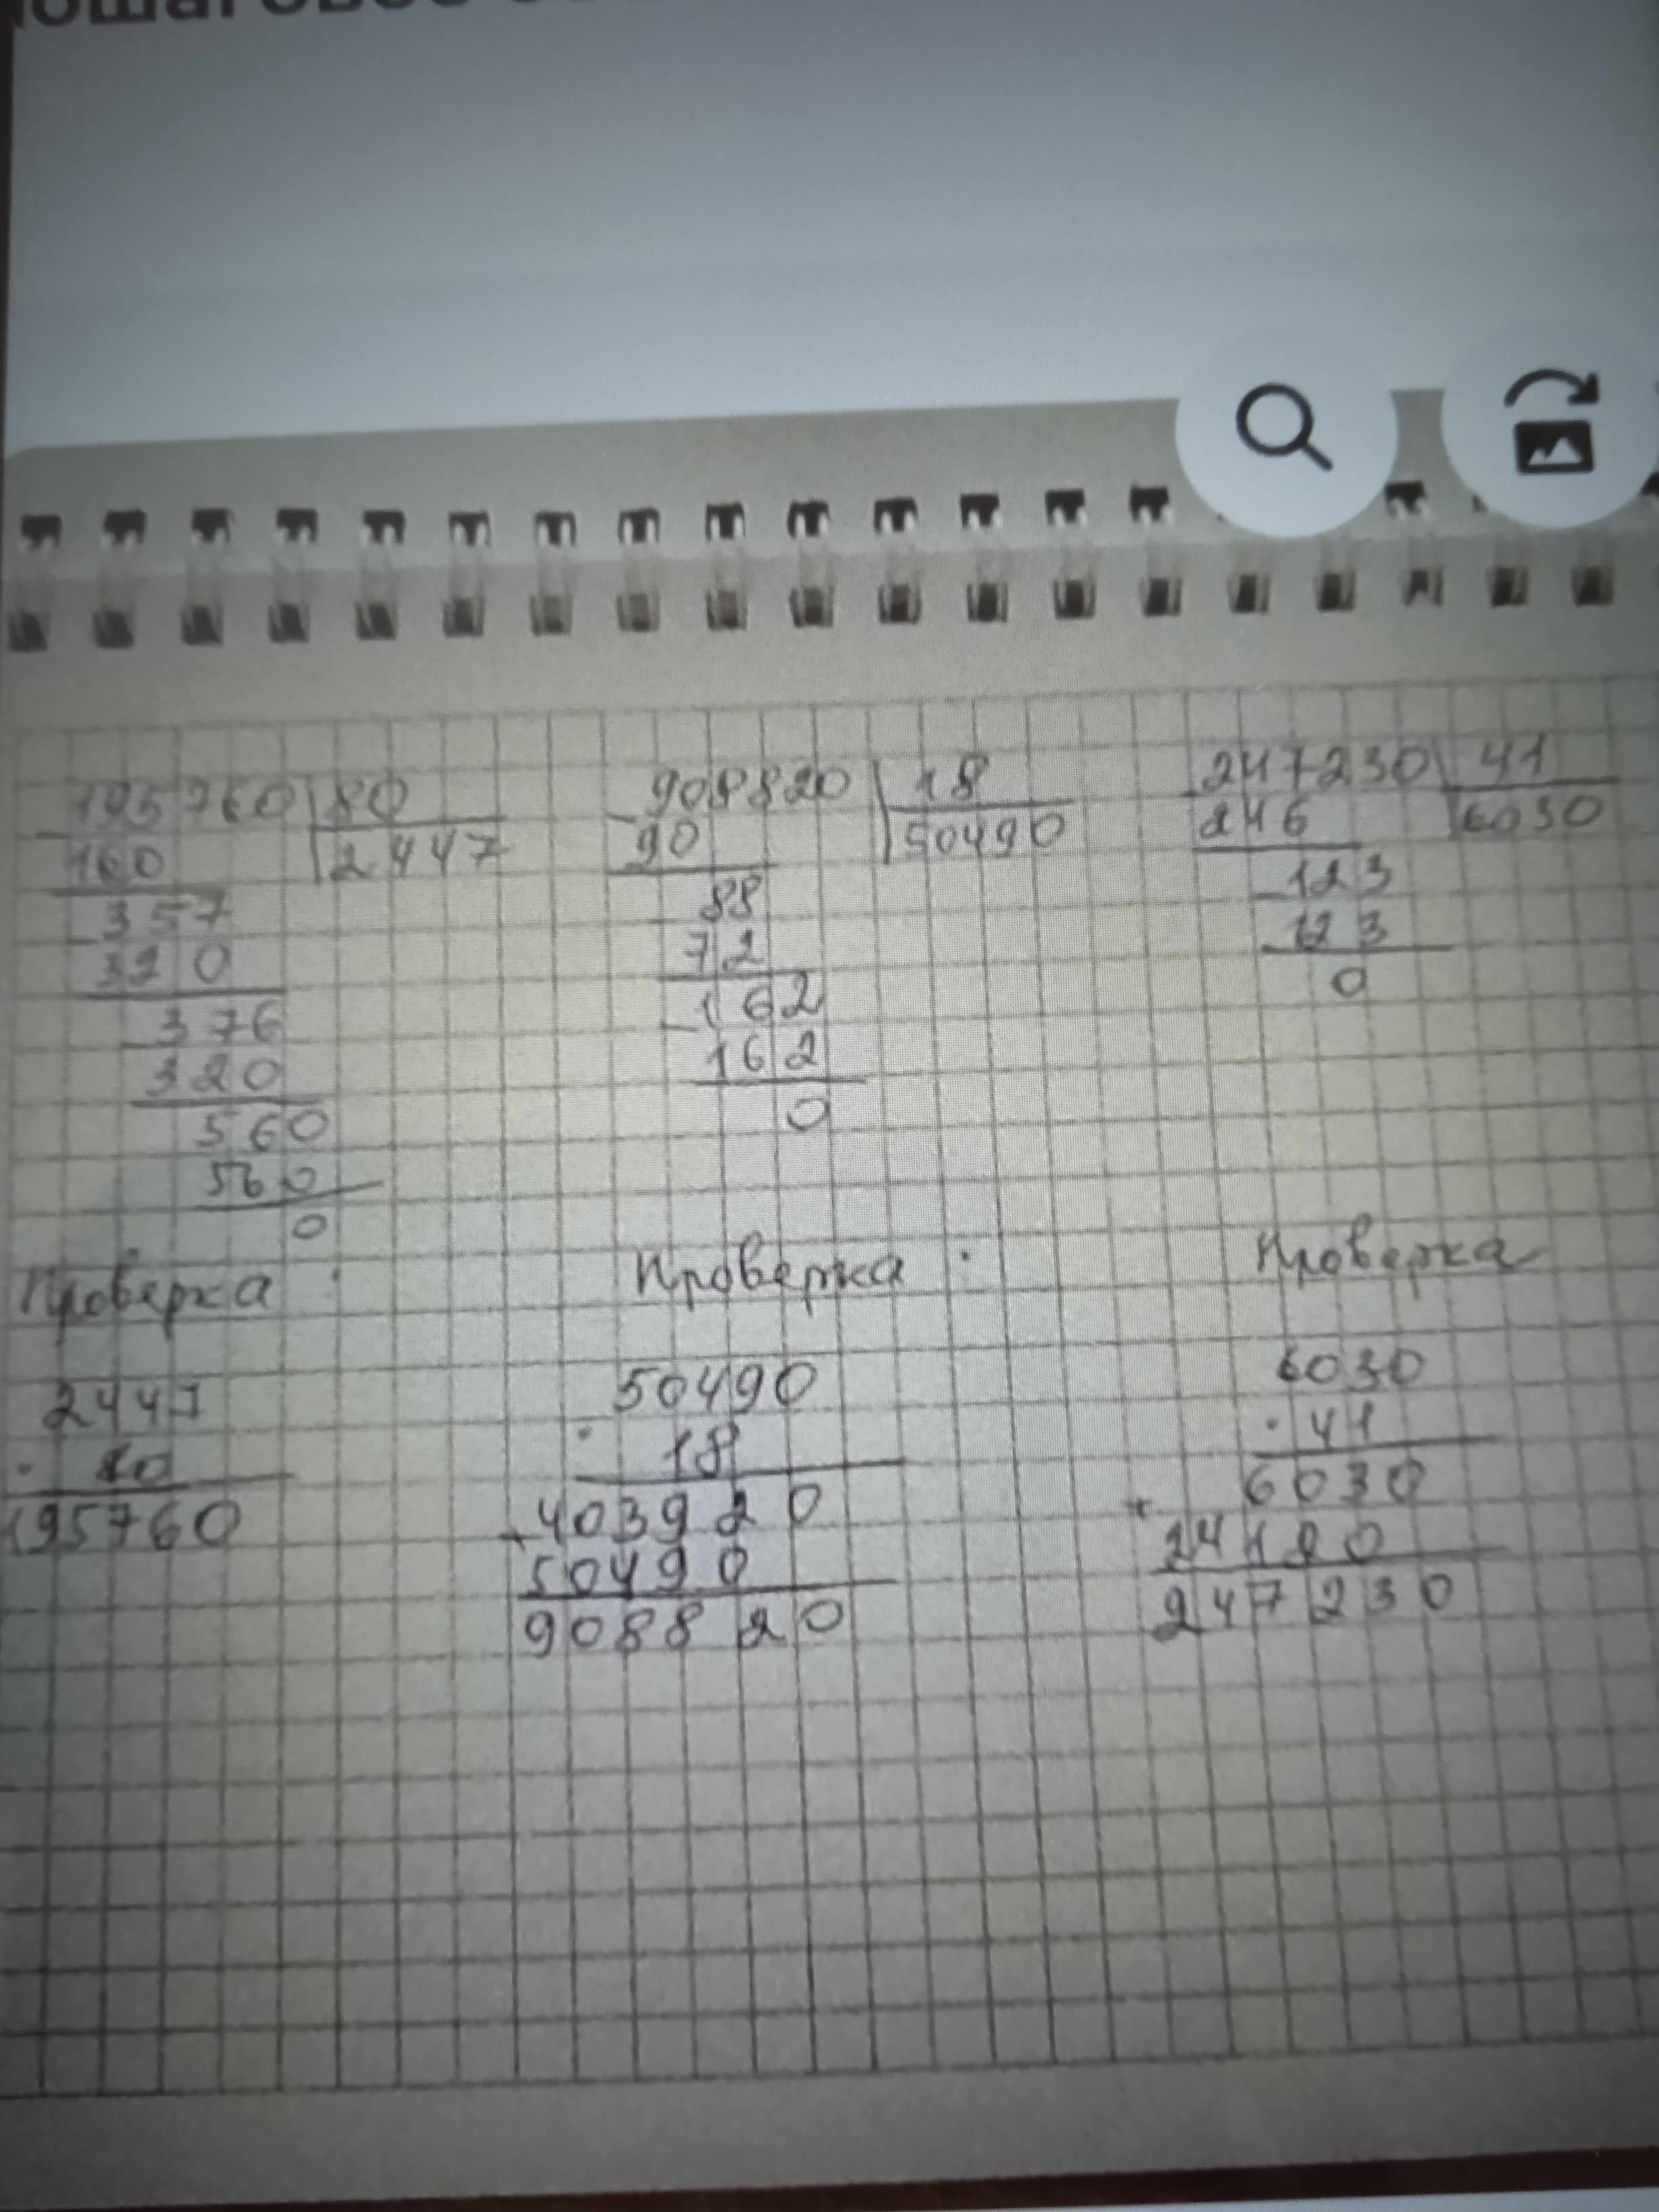 195760 80
- 160 2447
- 357
320
- 376
320
560
560
0
- 908820 18
90 50490
88
72
- 162
162
0
- 247230 41
246 6030
- 123
123
0
Проверка :
2447
· 80
195760
Проверка :
50490
· 18
+ 403920
50490
908820
Проверка
6030
· 41
+ 6030
24120
247230